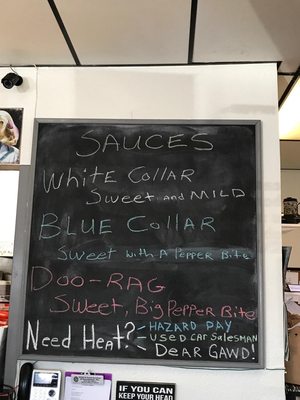 SAUCES
WHITE COLLAR
SWEET AND MILD
BLUE COLLAR
SWEET WITH A PEPPER BITE
DOO-RAG
SWEET, BIG PEPPER BITE
NEED HEAT? - HAZARD PAY
- USED CAR SALESMAN
- DEAR GAWD!
IF YOU CAN
KEEP YOUR HEAD